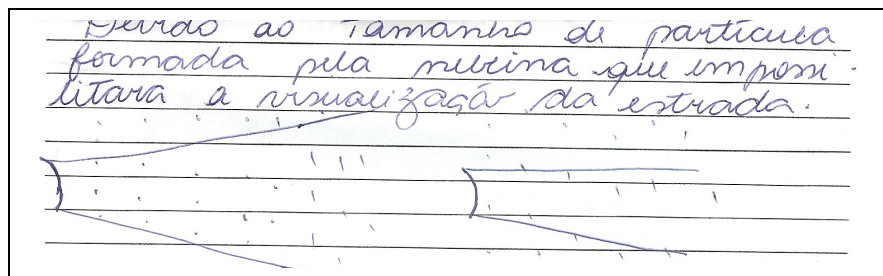 Devido ao Tamanho de partícula
formada pela neblina que impossi-
litara a visualização da estrada.